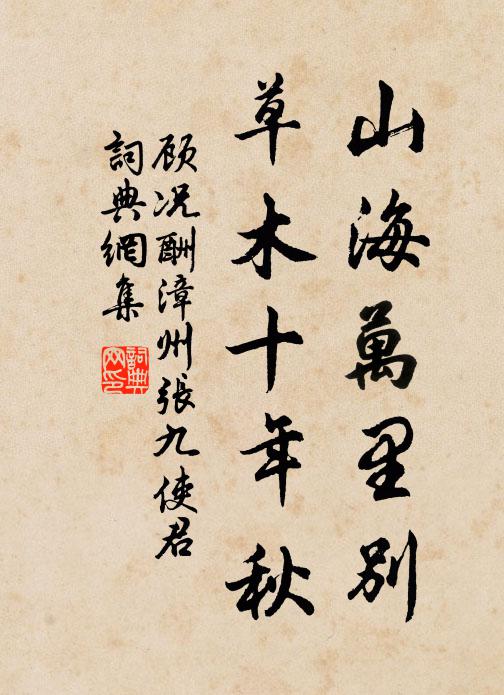 山海萬里別
草木十年秋
顾况酬漳州張九使君
詞典網集
詞典
网印